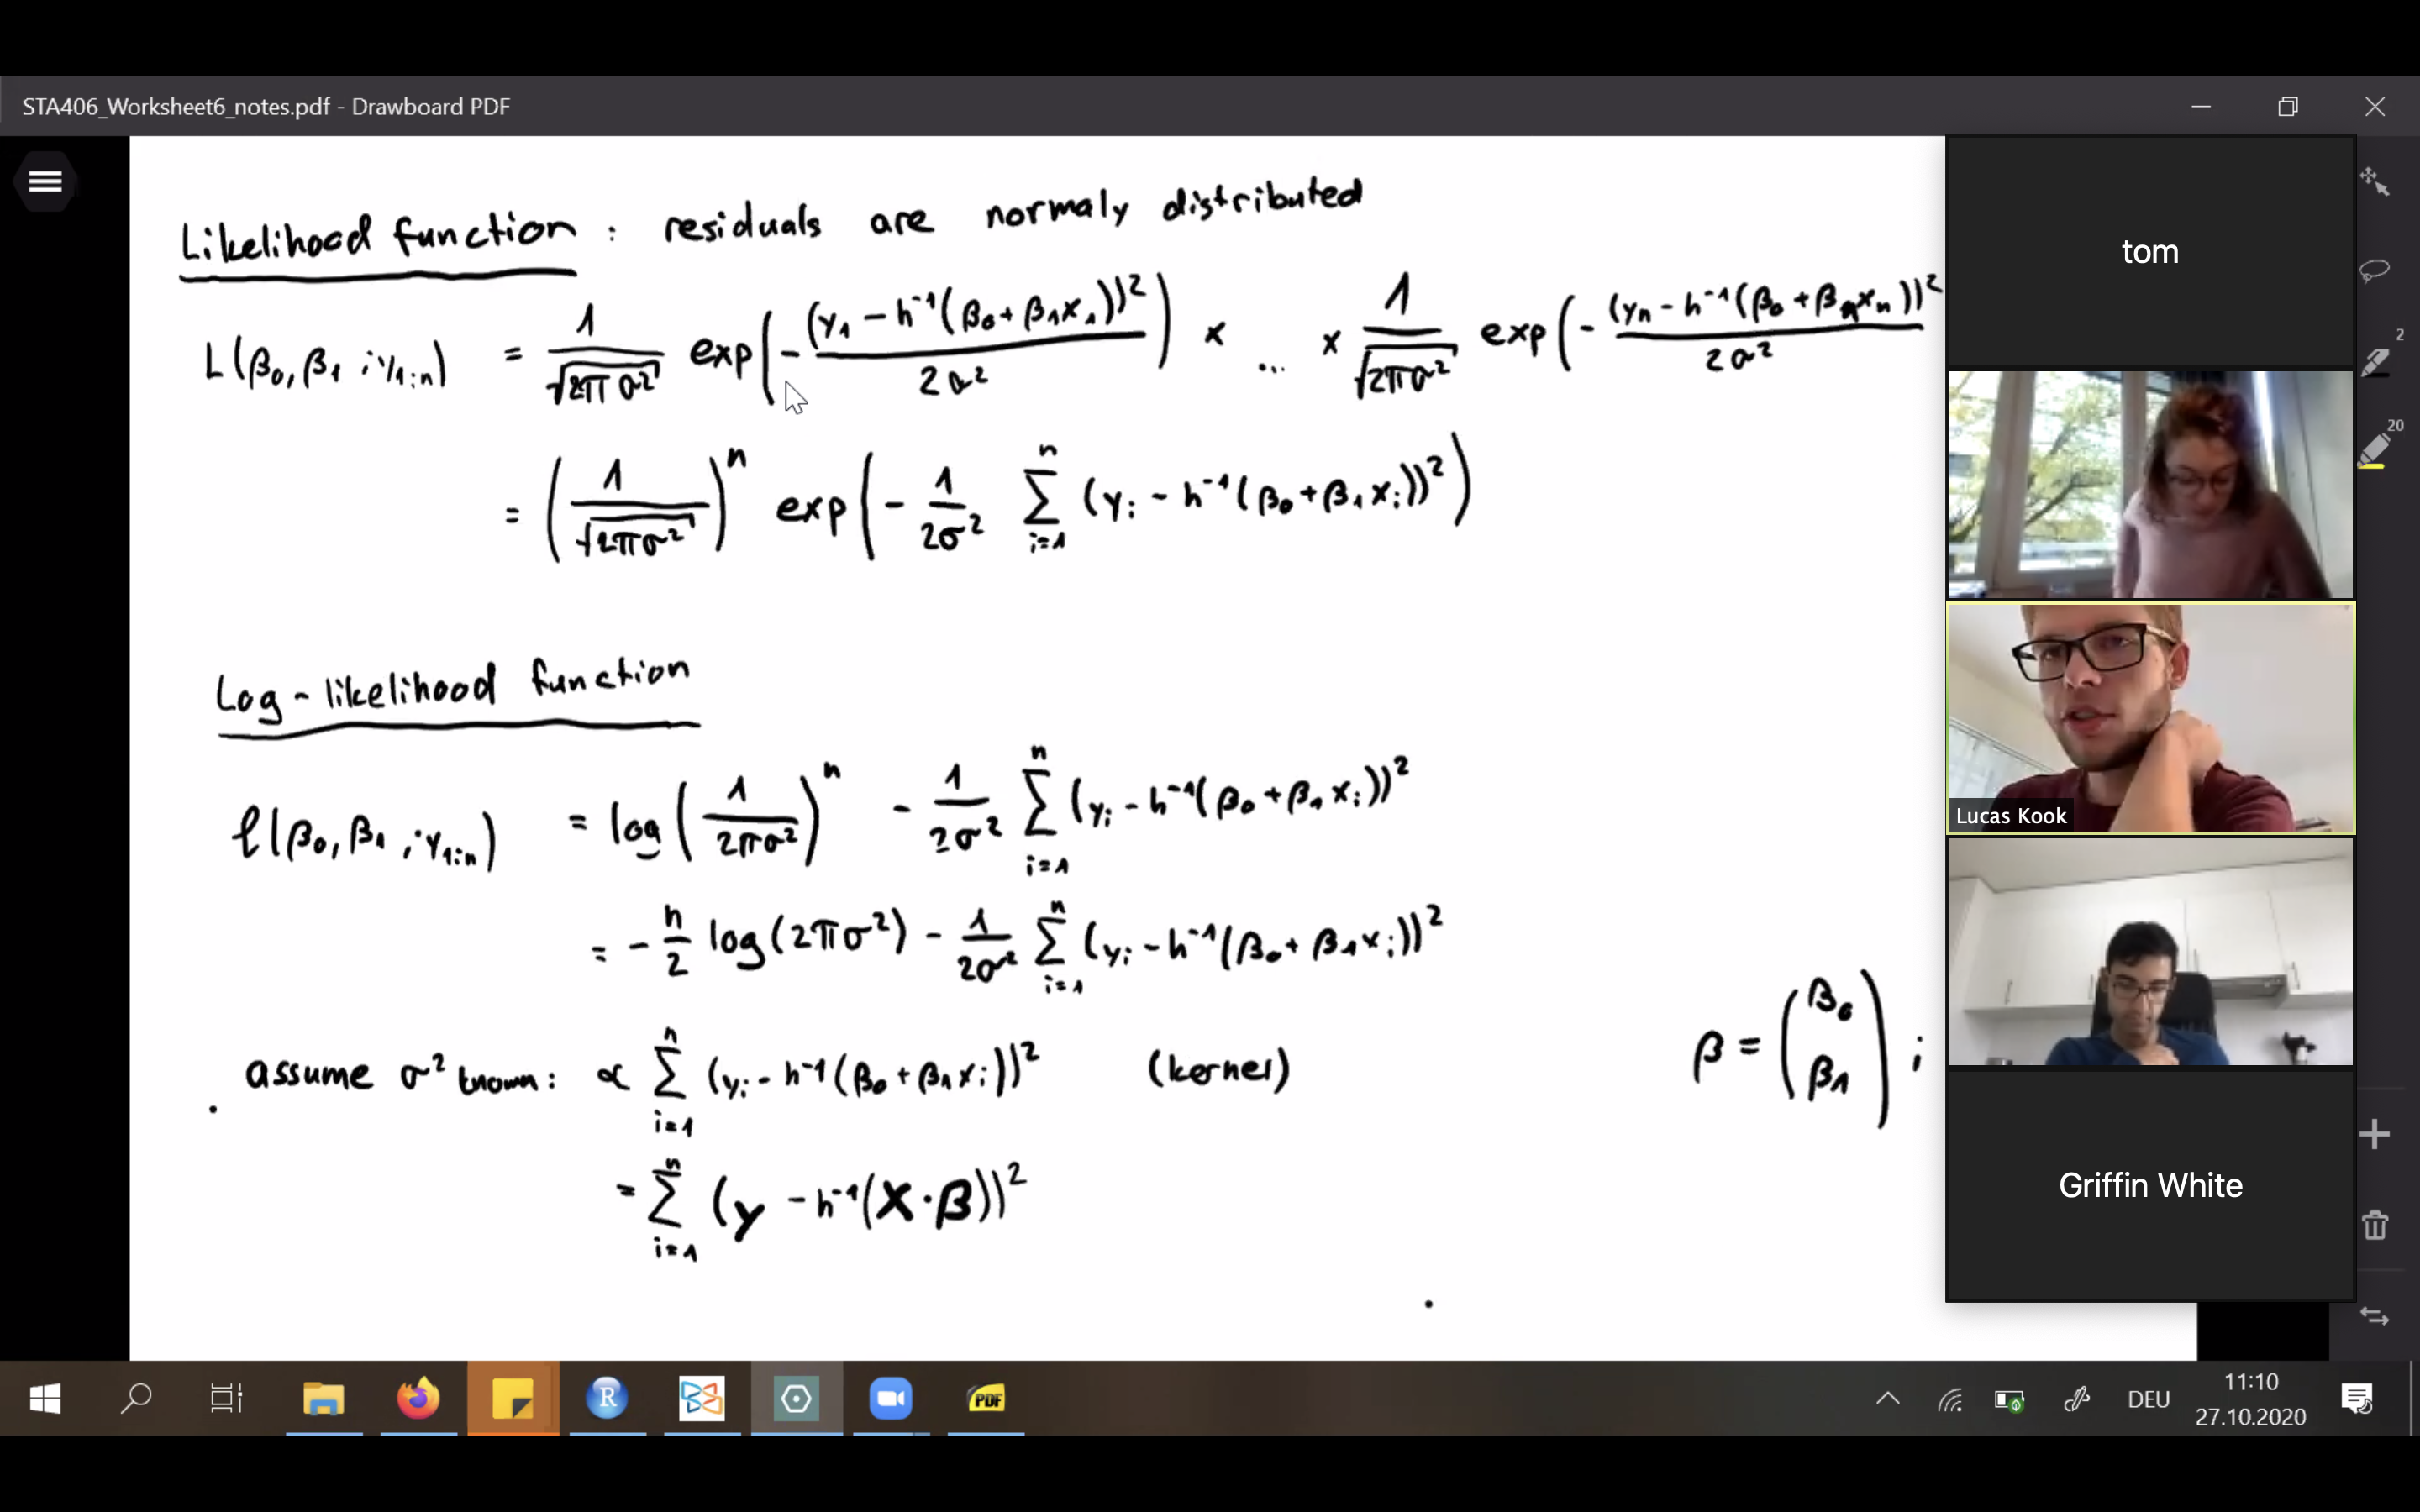 STA406_Worksheet6_notes.pdf - Drawboard PDF
Likelihood function : residuals are normaly distributed
L(β₀, β₁ ; y₁:ₙ) = 1/√(2πσ²) exp(- (y₁ - h⁻¹(β₀ + β₁x₁))² / 2σ²) × ... × 1/√(2πσ²) exp(- (yₙ - h⁻¹(β₀ + β₁xₙ))² / 2σ²
= (1/√(2πσ²))ⁿ exp(- 1/2σ² Σᵢ₌₁ⁿ (yᵢ - h⁻¹(β₀ + β₁xᵢ))²)
Log-likelihood function
ℓ(β₀, β₁ ; y₁:ₙ) = log(1/2πσ²)ⁿ - 1/2σ² Σᵢ₌₁ⁿ (yᵢ - h⁻¹(β₀ + β₁xᵢ))²
= - n/2 log(2πσ²) - 1/2σ² Σᵢ₌₁ⁿ (yᵢ - h⁻¹(β₀ + β₁xᵢ))²
assume σ² known: ∝ Σᵢ₌₁ⁿ (yᵢ - h⁻¹(β₀ + β₁xᵢ))² (kernel) β = (β₀ β₁) ;
= Σᵢ₌₁ⁿ (y - h⁻¹(X·β))²
tom
Lucas Kook
Griffin White
2
20
R
PDF
DEU
11:10
27.10.2020